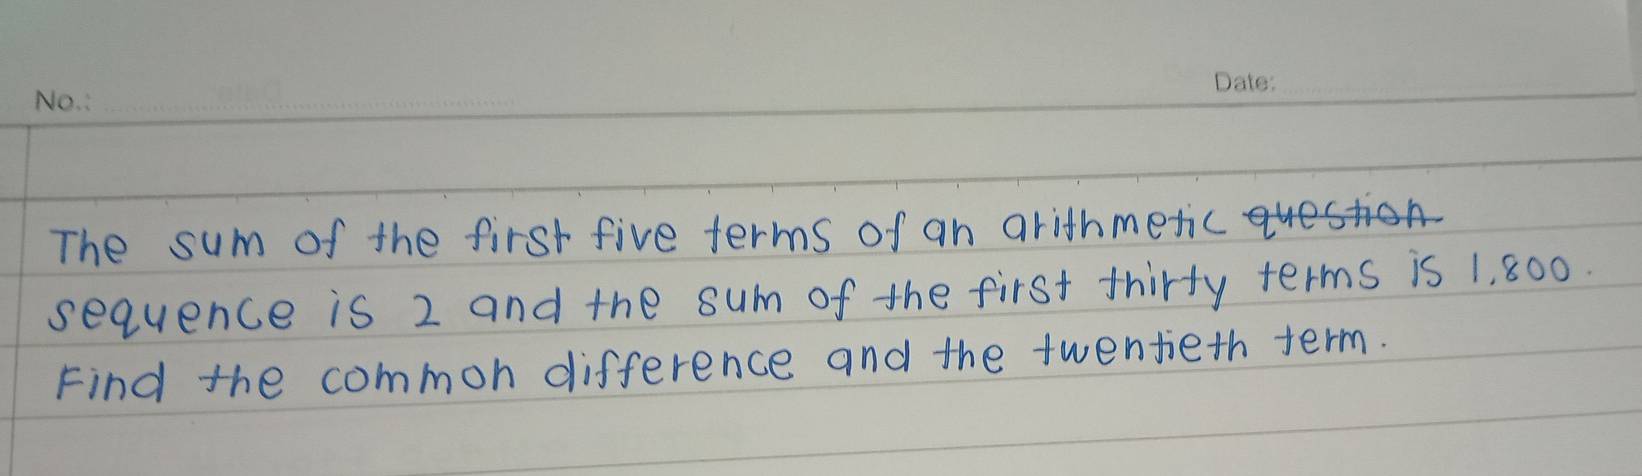 No.:
Date:
The sum of the first five terms of an arithmetic question
sequence is 2 and the sum of the first thirty terms is 1,800.
Find the common difference and the twentieth term.